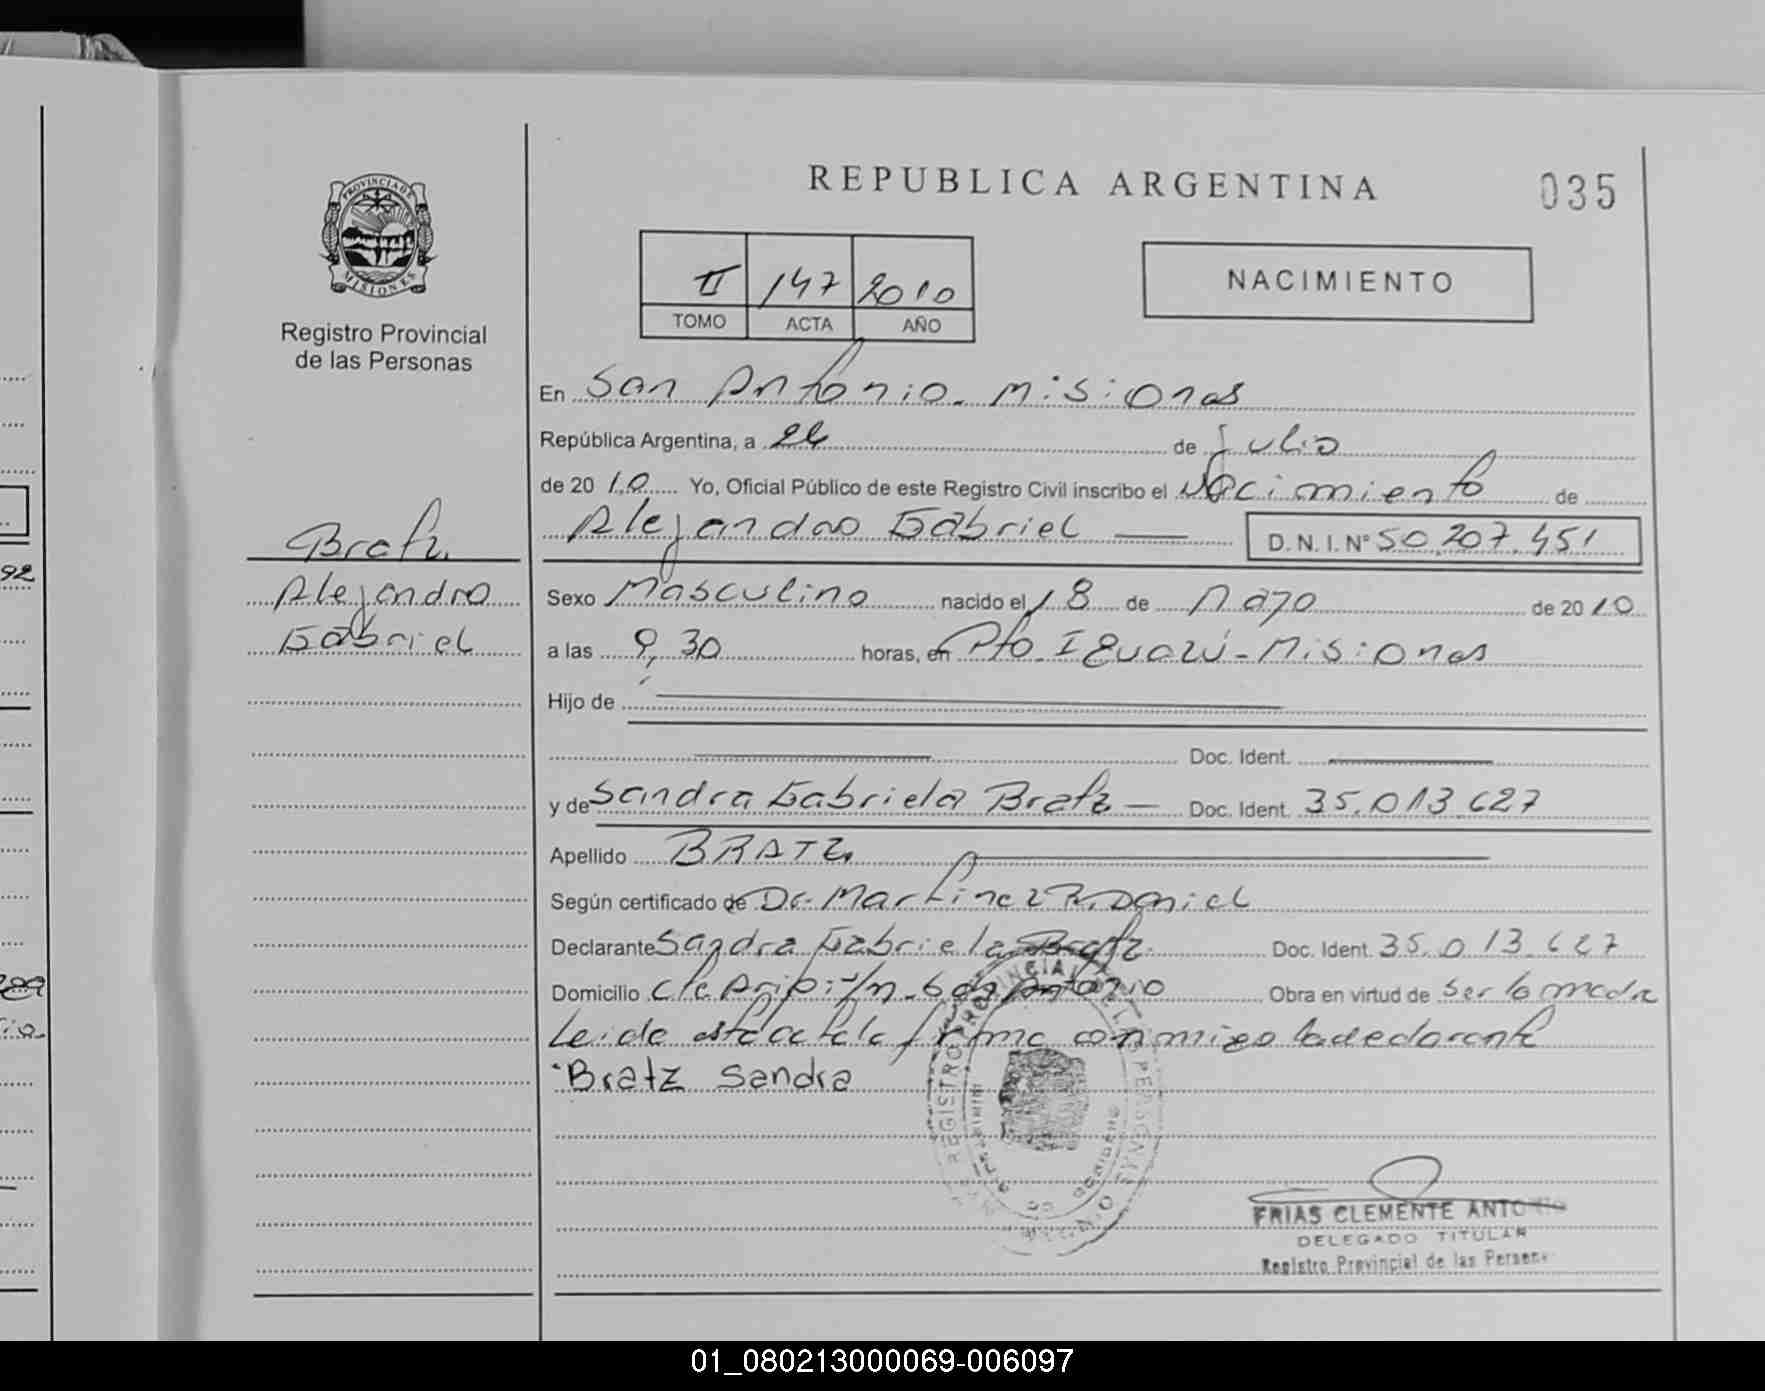 REPUBLICA ARGENTINA
035
PROVINCIA DE
MISIONES
Registro Provincial
de las Personas
II 147 2010
TOMO ACTA AÑO
NACIMIENTO
En San Antonio - Misiones
República Argentina, a de Julio
de 20 10 Yo, Oficial Público de este Registro Civil inscribo el Nacimiento de
Alejandro Gabriel D.N.I. Nº 50.207.451
Bratz
Alejandro
Gabriel
Sexo Masculino nacido el 18 de Mayo de 2010
a las 9,30 horas, en Pto Iguazú - Misiones
Hijo de
Doc. Ident.
y de Sandra Gabriela Bratz Doc. Ident. 35.013.627
Apellido BRATZ
Según certificado de Dr. Martinez R. Daniel
Declarante Sandra Gabriela Bratz Doc. Ident. 35.013.627
Domicilio San Antonio Obra en virtud de Ser la madre
Leida esta acta la firma conmigo la declarante
Bratz Sandra
REGISTRO PROVINCIAL PERSONAS
FRIAS CLEMENTE ANTONIO
DELEGADO TITULAR
Registro Provincial de las Persona
92
01_080213000069-006097